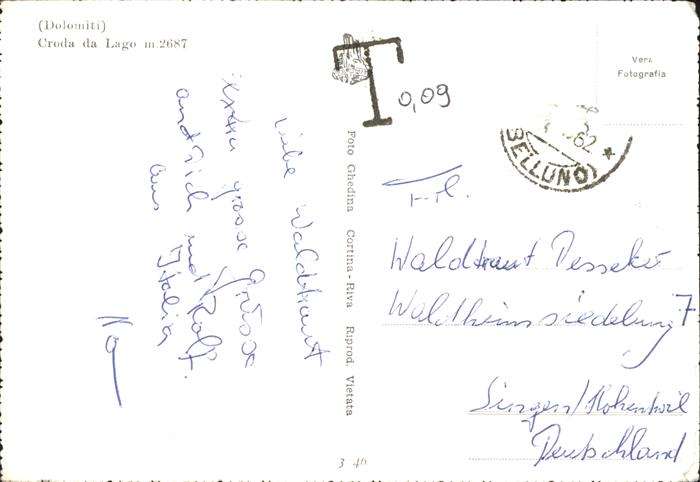 (Dolomiti)
Croda da Lago m.2687
Vera
Fotografia
T
0,09
62
BELLUNO
Liebe Waldtraut
extra grosse Grüsse
an dich und Rolf.
aus Italia
Foto Ghedina Cortina-Riva Riprod. Vietata
Frl.
Waldtraut
Waldheimsiedelung 7
Singen/Hohentwil
Deutschland
3 46